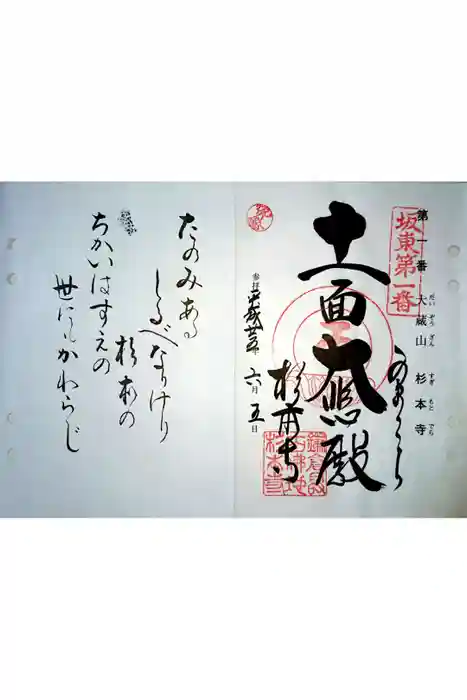 第一番 大蔵山 杉本寺
だいぞうざん すぎもとでら
坂東第一番
十一面大悲殿
杉本寺
参拝 平成廿五年六月五日
たのみある
しるべなりけり
杉本の
ちかいはすえの
世にもかわらじ